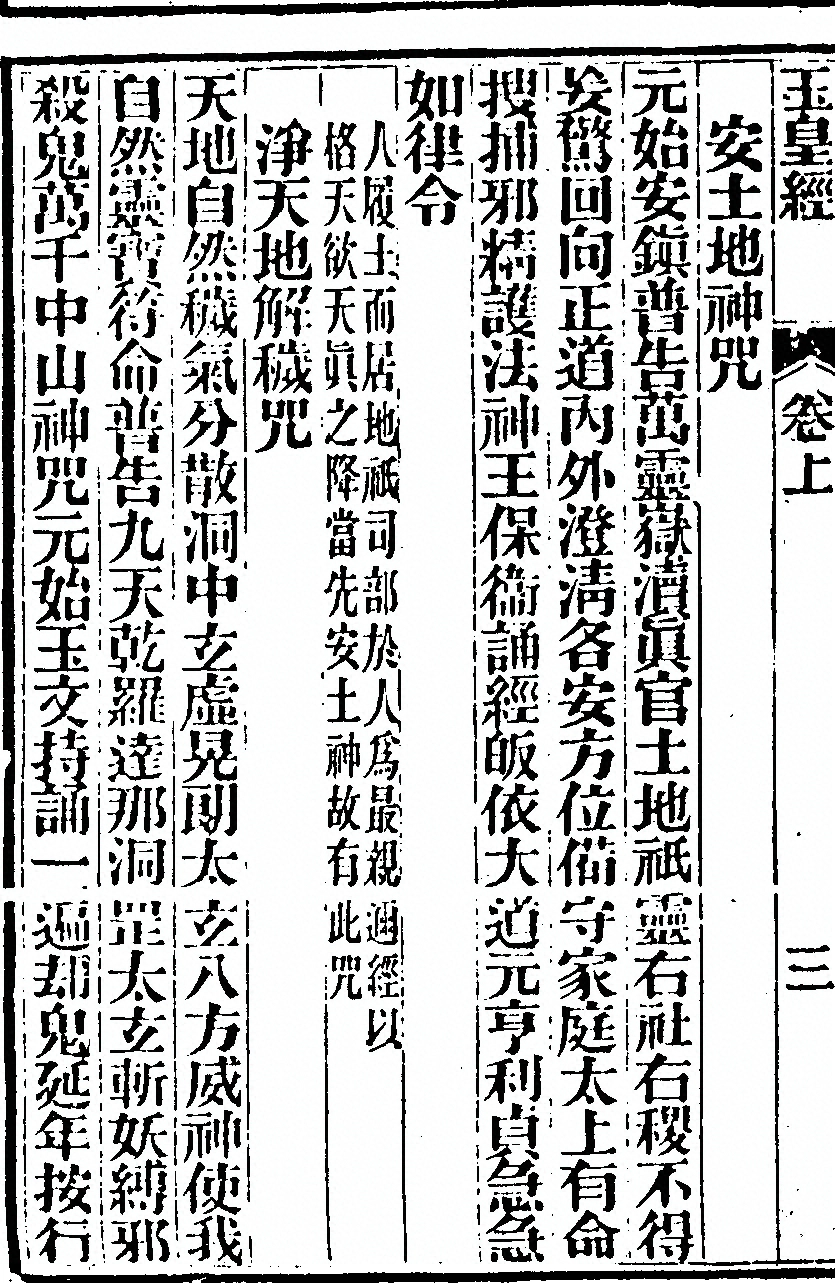 玉皇經 卷上 三
安土地神咒
元始安鎭普告萬靈嶽瀆眞官土地祇靈右社右稷不得
妄驚回向正道內外澄淸各安方位備守家庭太上有命
搜捕邪精護法神王保衞誦經皈依大道元亨利貞急急
如律令
人履土而居地祇司部於人爲最親通經以
格天欲天眞之降當先安土神故有此咒
淨天地解穢咒
天地自然穢氣分散洞中玄虛晃朗太玄八方威神使我
自然靈寳符命普告九天乾羅達那洞罡太玄斬妖縛邪
殺鬼萬千中山神咒元始玉文持誦一遍却鬼延年按行